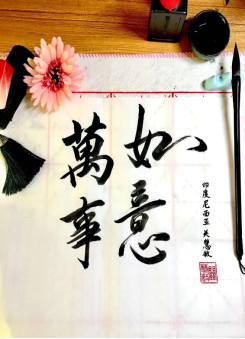 萬事
如意
印度尼西亚 关慧敏